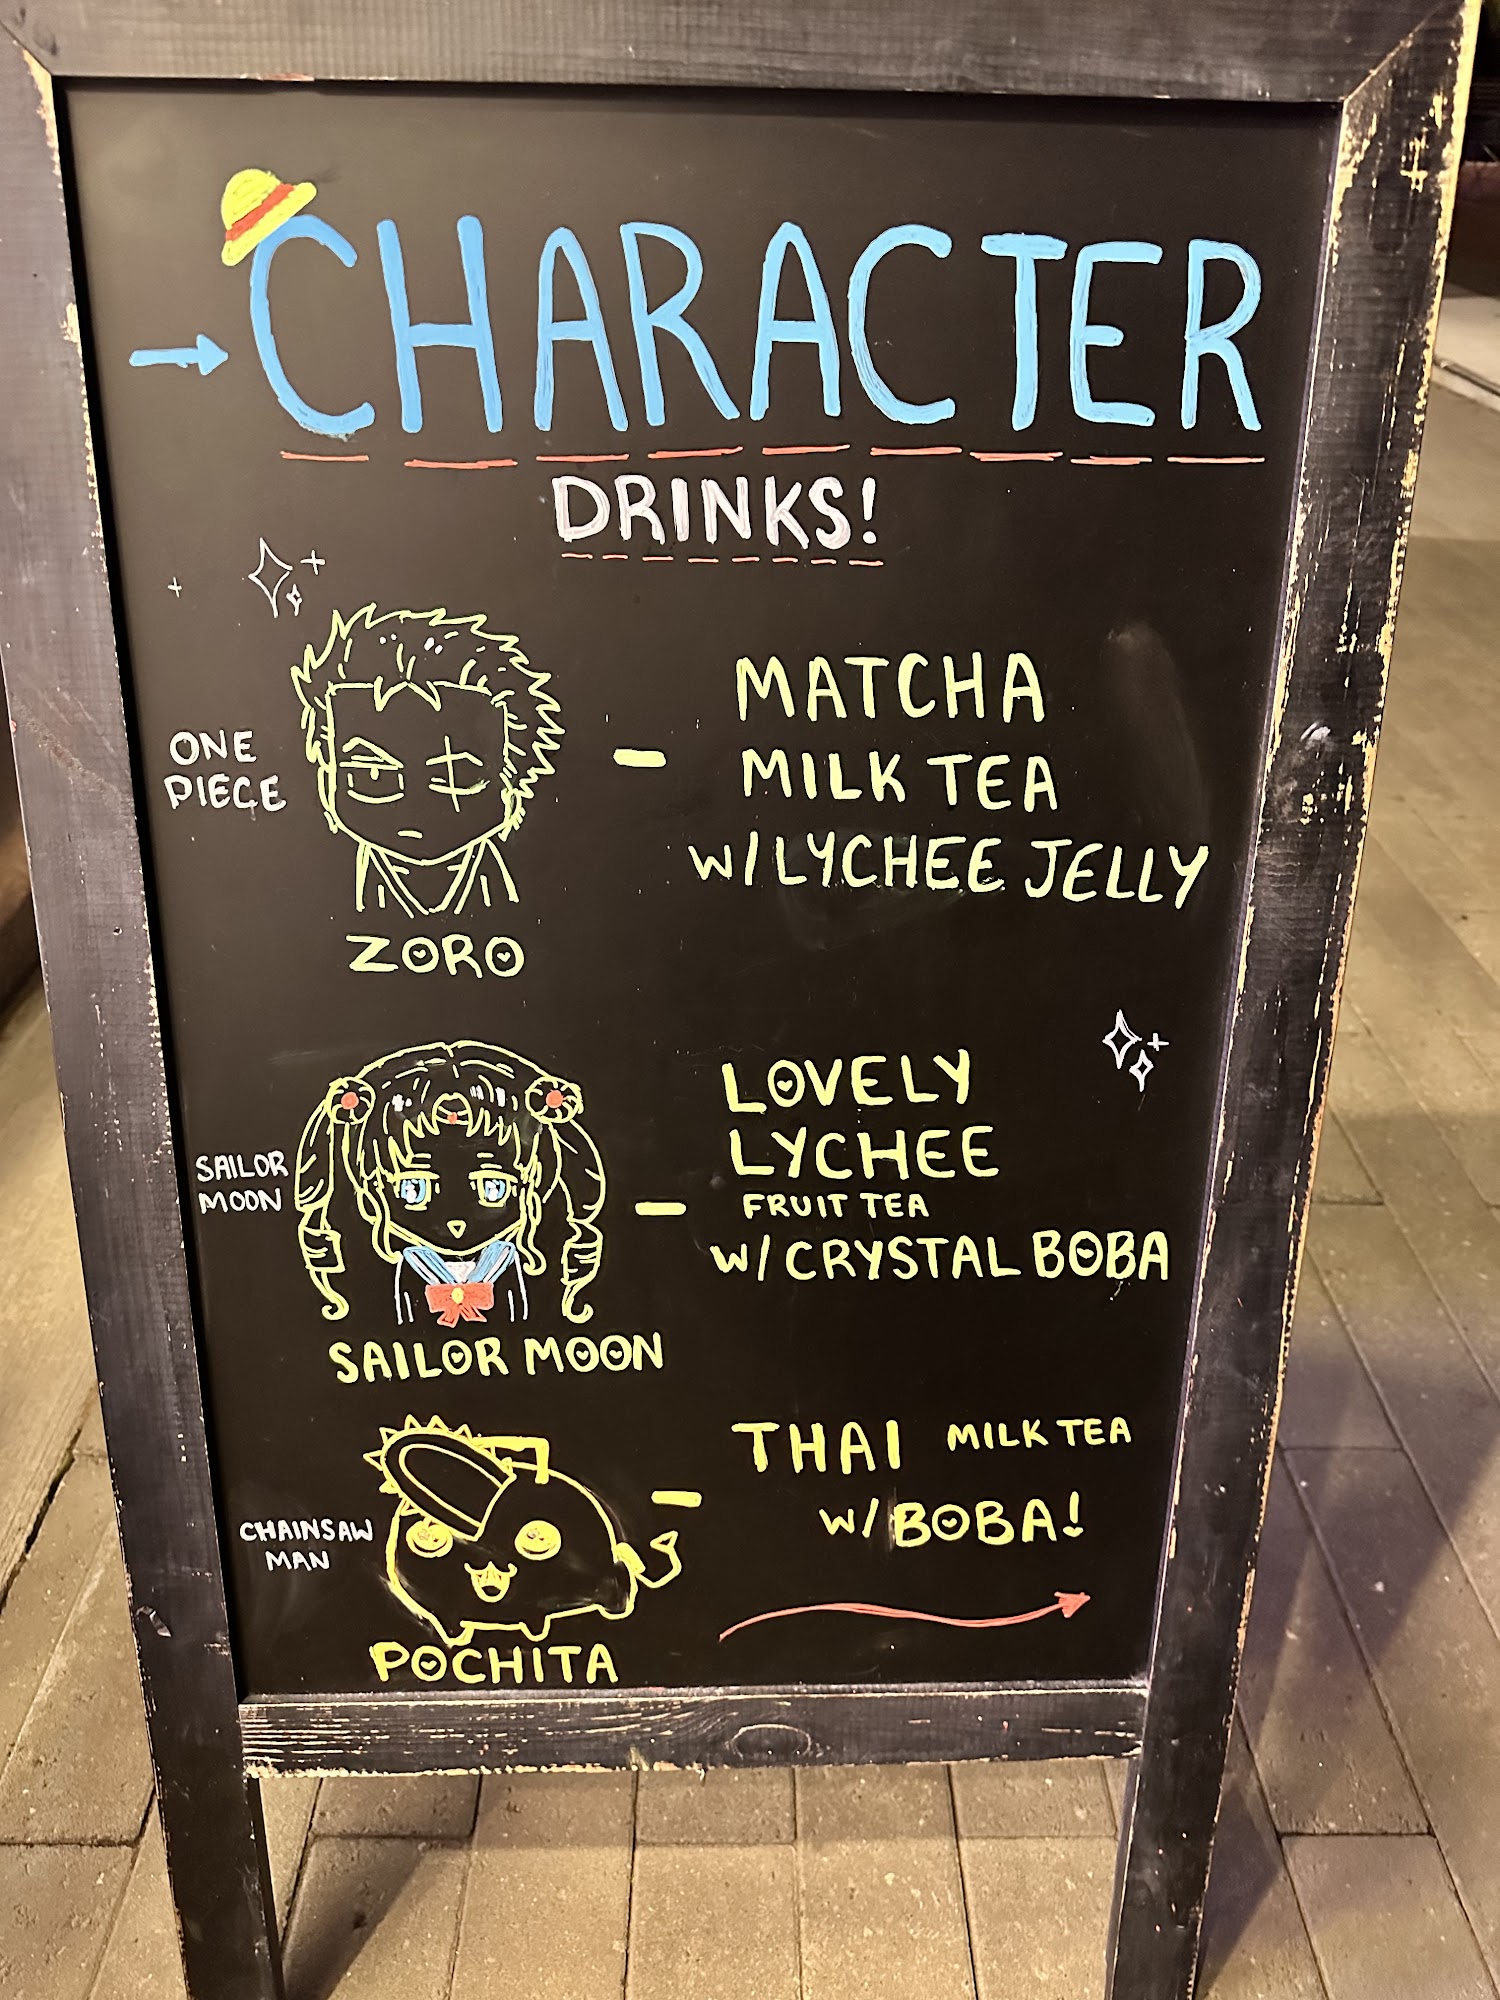 CHARACTER
DRINKS!
ONE
PIECE
ZORO
MATCHA
MILK TEA
W/ LYCHEE JELLY
SAILOR
MOON
SAILOR MOON
LOVELY
LYCHEE
FRUIT TEA
W/ CRYSTAL BOBA
CHAINSAW
MAN
POCHITA
THAI MILK TEA
W/ BOBA!